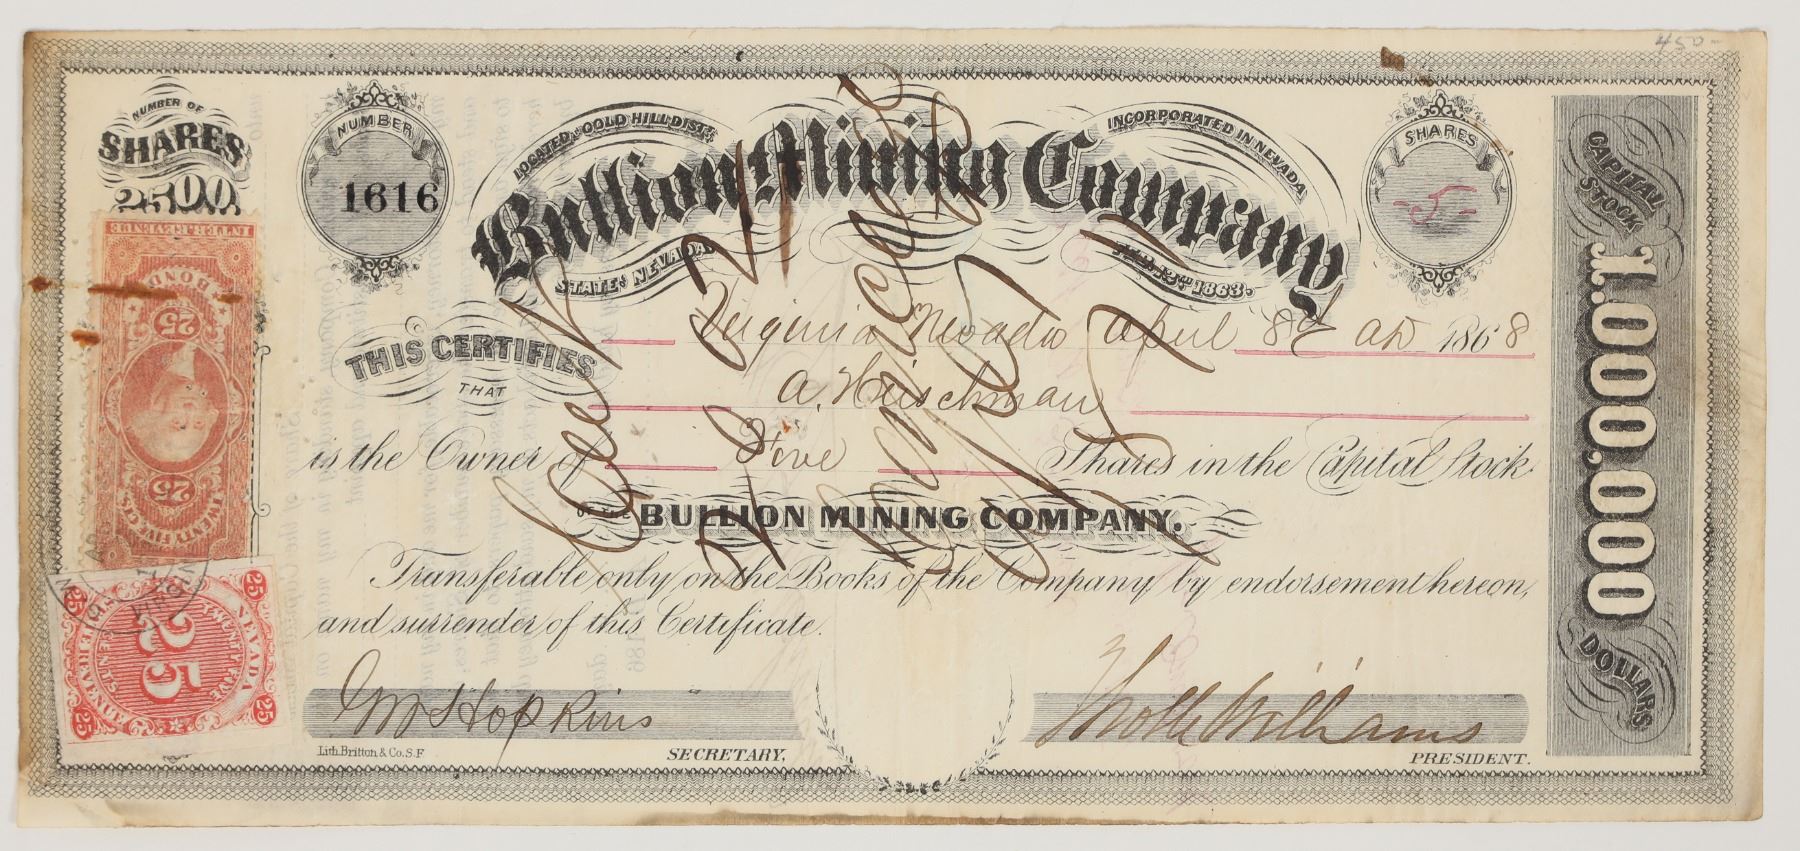 450-
NUMBER OF
SHARES
2500
NUMBER
1616
LOCATED, GOLD HILL DIST;
INCORPORATED IN NEVADA
Bullion Mining Company
STATE, NEVADA
FEB. 13TH 1863.
SHARES
-5-
CAPITAL
STOCK
1.000,000
DOLLARS
INTER. REVENUE
BOND
25
25
TWENTY FIVE CTS
Virginia Nevada April 8th AD 1868
THIS CERTIFIES
THAT
A. Hirschman
is the Owner of Five Shares in the Capital Stock
OF THE BULLION MINING COMPANY.
Transferable only on the Books of the Company, by endorsement hereon,
and surrender of this Certificate.
Cancelled
25
NEVADA
TWENTY FIVE
25
CENTS
REVENUE
25
25
25
Wm S Hopkins
SECRETARY.
PRESIDENT.
Lith. Britton & Co. S.F